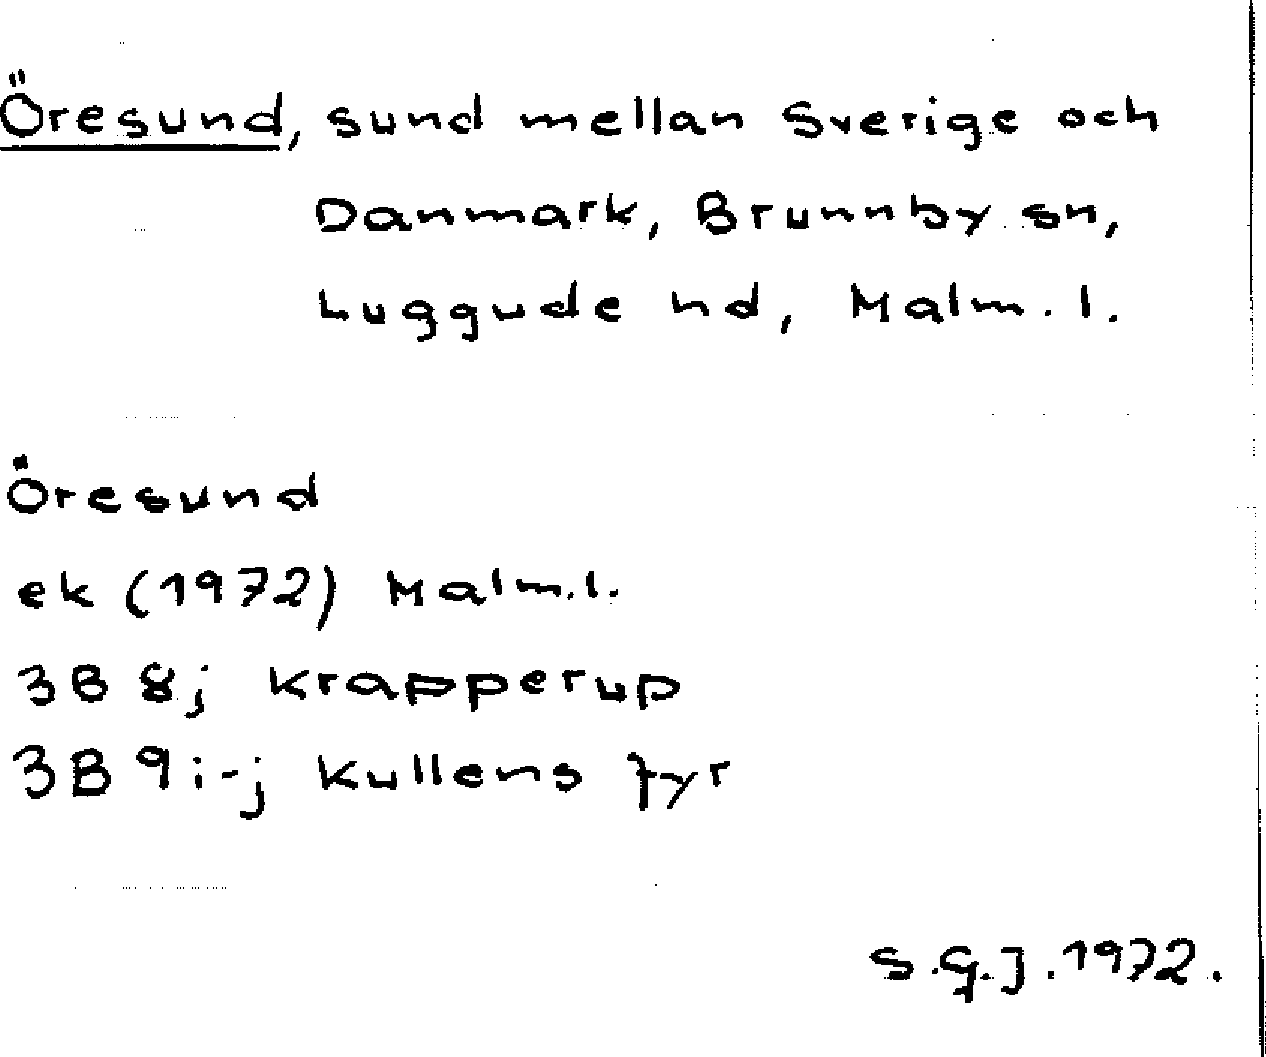 Öresund, sund mellan Sverige och
Danmark, Brunnby sn,
Luggude hd, Malm. l.
Öresund
ek (1972) Malm.l.
3B 8j Krapperup
3B 9i-j Kullens fyr
S.G.J. 1972.